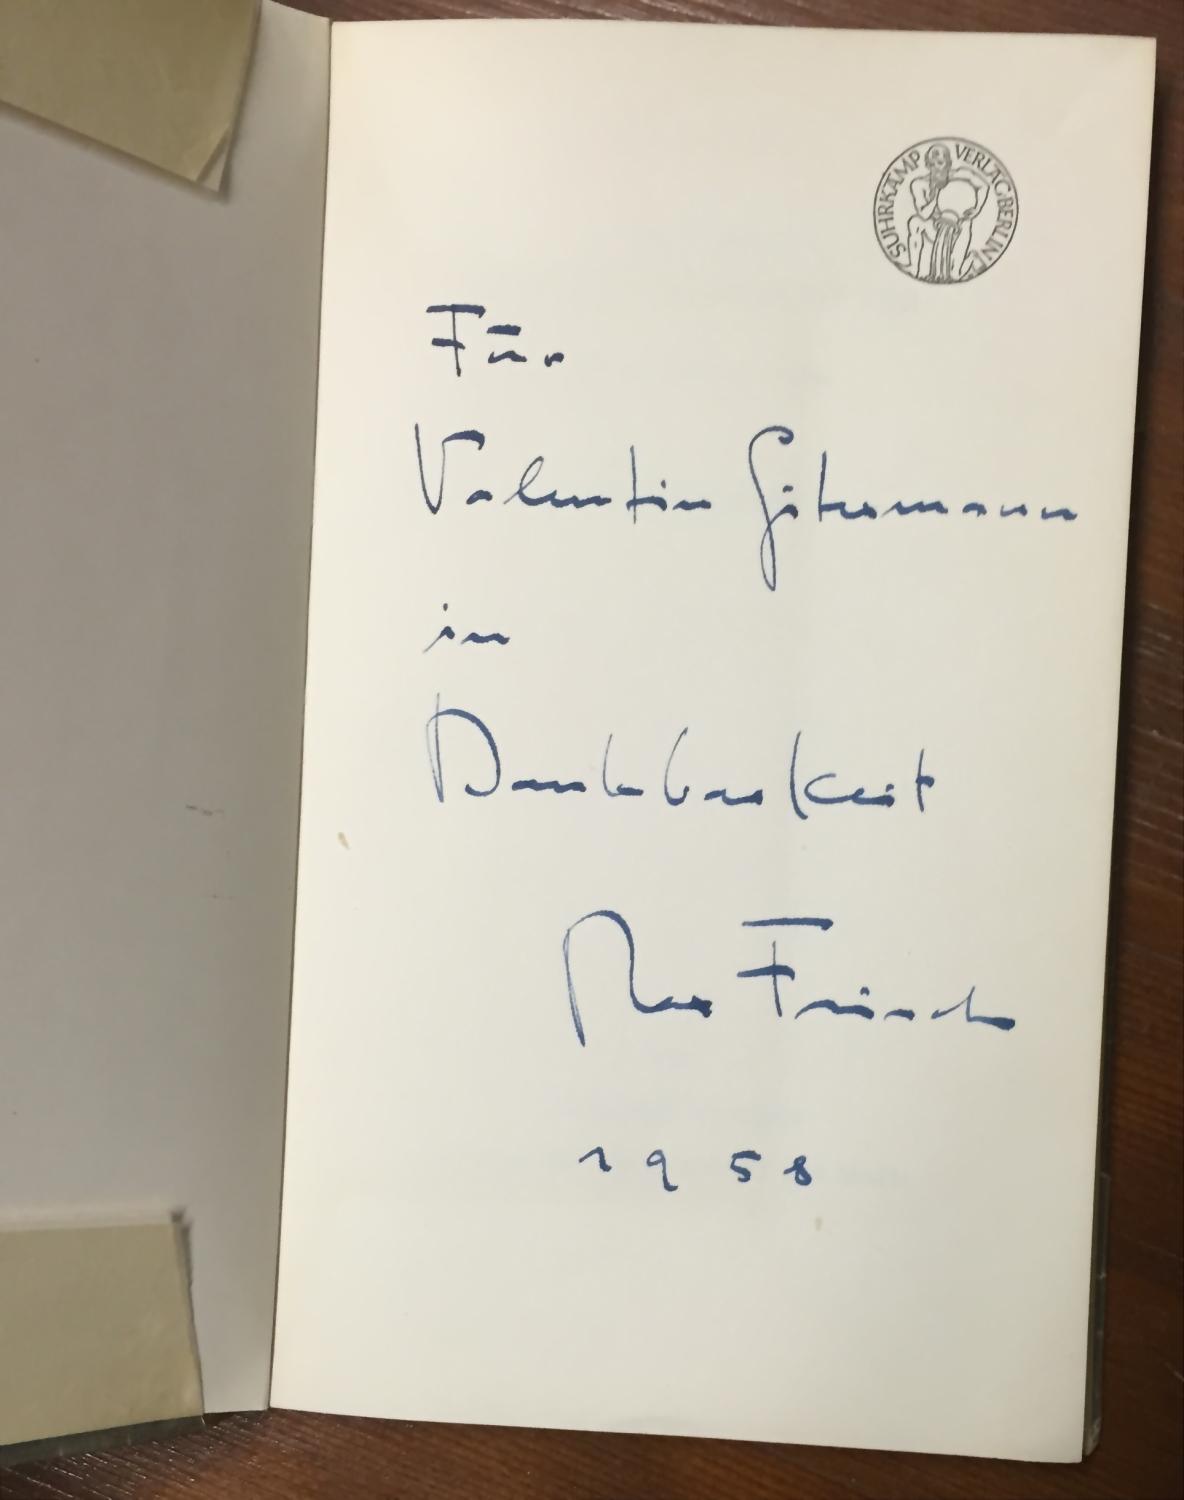 SUHRKAMP VERLAG BERLIN
Für
Valentin Gitermann
in
Dankbarkeit
Max Frisch
1958